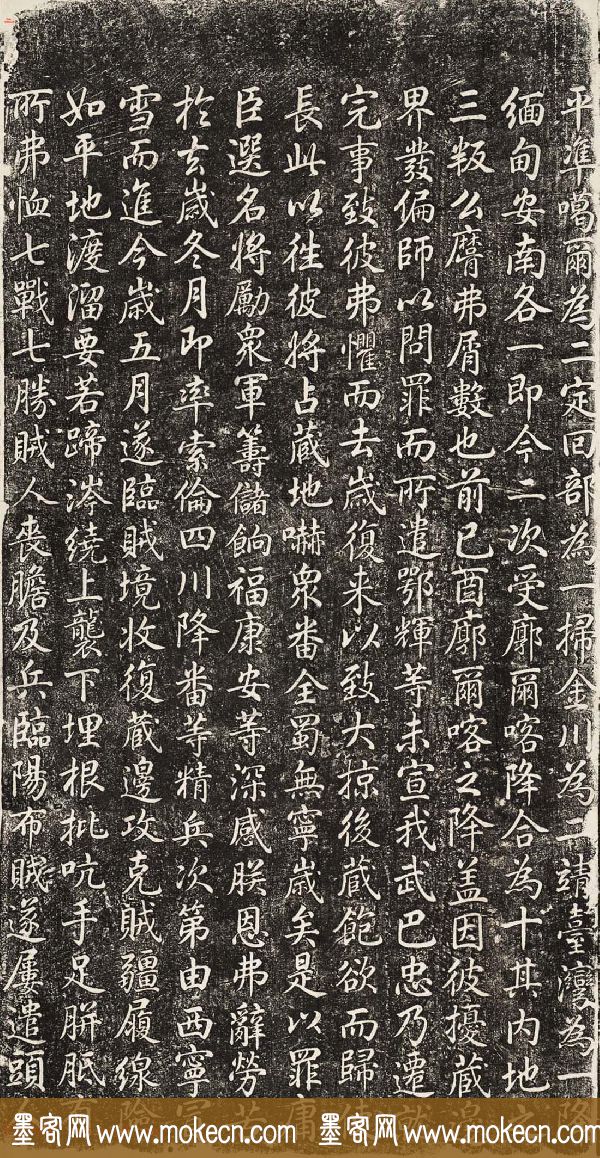 平凖噶爾為二定回部為一掃金川為二靖臺灣為一降
緬甸安南各一即今二次受廓爾喀降合為十其内地之
三叛么麿弗屑數也前已酉廓爾喀之降盖因彼擾藏
界發偏師以問罪而所遣鄂輝等未宣我武巴忠乃遷就
完事致彼弗懼而去歲復来以致大掠後藏飽欲而歸
長此以徃彼將占藏地嚇衆番全蜀無寧歲矣是以罪庸
臣選名將勵衆軍籌儲餉福康安等深感朕恩弗辭勞苦
於去歲冬月即率索倫四川降番等精兵次第由西寧
雪而進今歲五月遂臨賊境收復藏邊攻克賊疆履線險
如平地渡溜要若蹄涔繞上襲下埋根批吭手足胼胝
所弗恤七戰七勝賊人喪膽及兵臨陽布賊遂屢遣頭
墨客网 www.mokecn.com 墨客网 www.mokecn.com